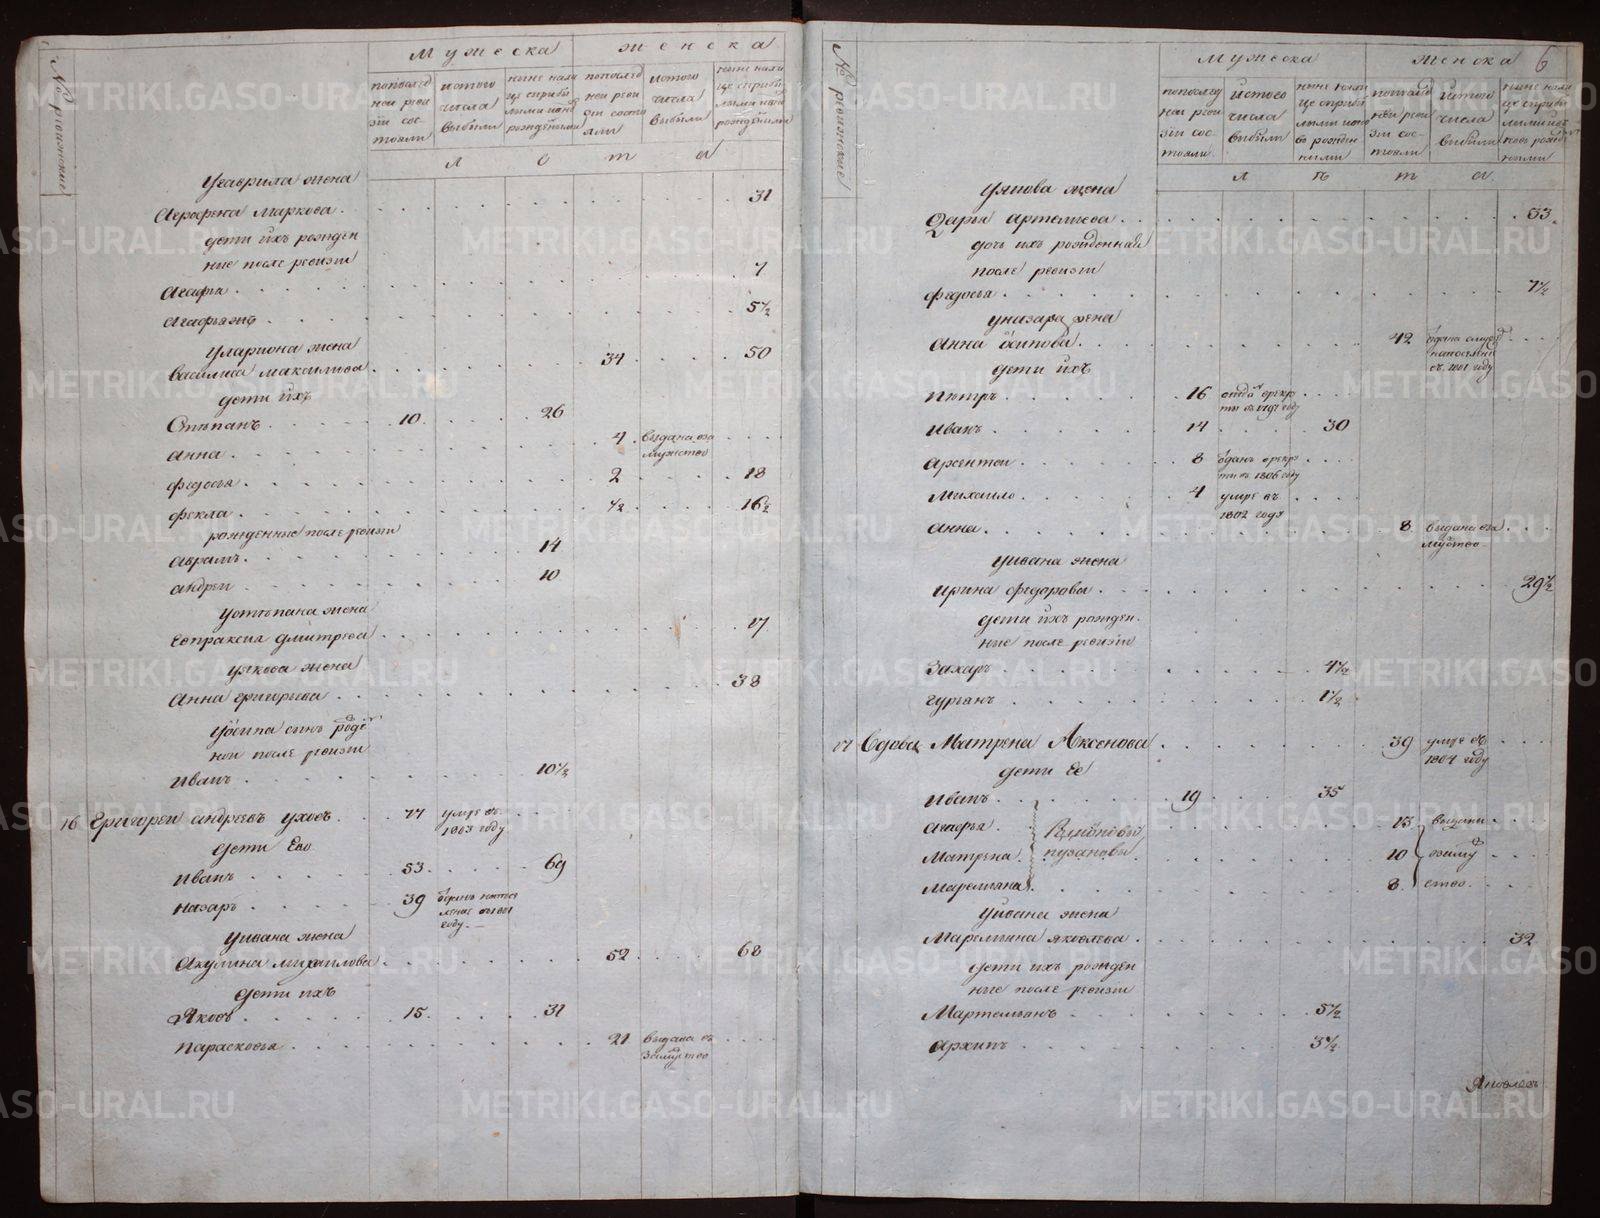 № ревижские
Мужеска
Женска
по послед
ней реви
зіи сос-
тояли
ис того
числа
выбыли
ныне нали
це с прибы
лыми и нов
рождеными
по послед
ней реви
зіи состо
яли
ис того
числа
выбыли
ныне нали
це с прибы
лыми и нов
рождеными
л е т а
У Гаврила жена
Аграфена Маркова . 31
дети ихъ рожден
ные после ревизіи
Агафья . 7
Агафья 5 1/2
У Лариона жена
Василиса Максимова . 34 50
дети ихъ
Степанъ 10 26
Анна . 4 выдана в за
мужство
Федосья . 2 18
Фекла . 1/2 16 1/2
рожденные после ревизіи
Аврамъ . 14
Андреи 10
У Степана жена
Евпраксия Дмитрева 17
У Якова жена
Анна Григорьева . 38
У Осипа сынъ рожден
ной после ревизіи
Иванъ . 10 1/2
16 Григореи Андреевъ Уховъ . 77 умре въ
1803 году
дети Ево
Иванъ 53 69
Назаръ 39 отданъ на посе
ление в 1801
году
У Ивана жена
Акулина Михаилова 52 68
дети ихъ
Яковъ 15 31
Парасковья 21 выдана в
замужство
6
№ ревижские
Мужеска
Женска
по послед
ней реви
зіи сос-
тояли
ис того
числа
выбыли
ныне нали
це с прибы
лыми и но
во рожден
ными
по послед
ней реви
зіи сос-
тояли
ис того
числа
выбыли
ныне нали
це с прибы
лыми и
ново рожден
ными
л е т а
У Якова жена
Дарья Артемиева . 33
дочь ихъ рожденная
после ревизіи
Федосья . 7 1/2
У Назара жена
Анна Осипова . 42 отдана с мужем
на поселение
въ 1801 году
дети ихъ
Петръ 16 отданъ в рекру
ты въ 1797 году
Иванъ 14 30
Арсентеи 8 отданъ в рекру
ты въ 1806 году
Михаило 4 умре въ
1802 году
Анна . 8 выдана в за
мужство
У Ивана жена
Ирина Федорова . 29 1/2
дети ихъ рожден
ные после ревизіи
Захаръ 4 1/2
Гурьянъ 1 1/2
17 Вдова Матрена Аксенова 39 умре въ
1804 году
дети Ее
Иванъ 19 35
Агафья . 13 выданы
Матрена . 10 в замуж
Маремьяна . 8 ство
Пузановы
У Ивана жена
Маремьяна Яковлева . 32
дети ихъ рожден
ные после ревизіи
Мартемьянъ 5 1/2
Архипъ 3 1/2
Яковлевъ
METRIKI.GASO-URAL.RU